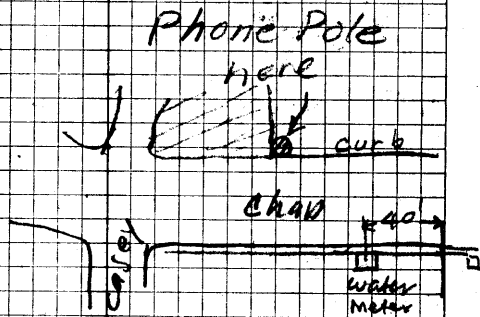 Phone Pole
here
curb
Chap
40
Casey
water
Meter